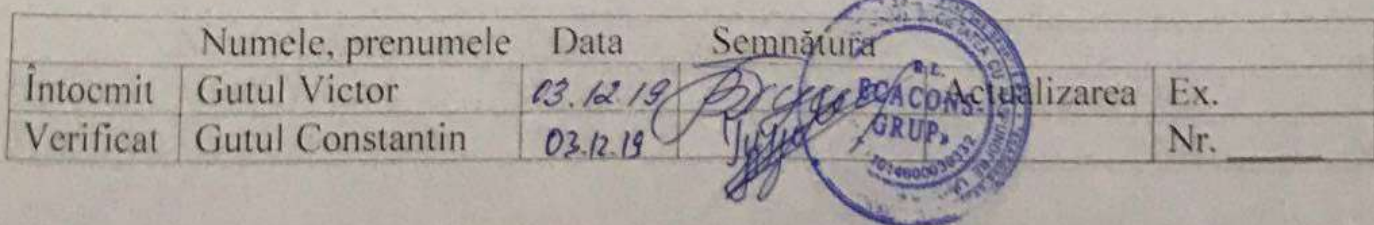 Numele, prenumele Data Semnătura
Întocmit Gutul Victor 03.12.19 Actualizarea Ex.
Verificat Gutul Constantin 03.12.19 Nr. ______
GRUP»